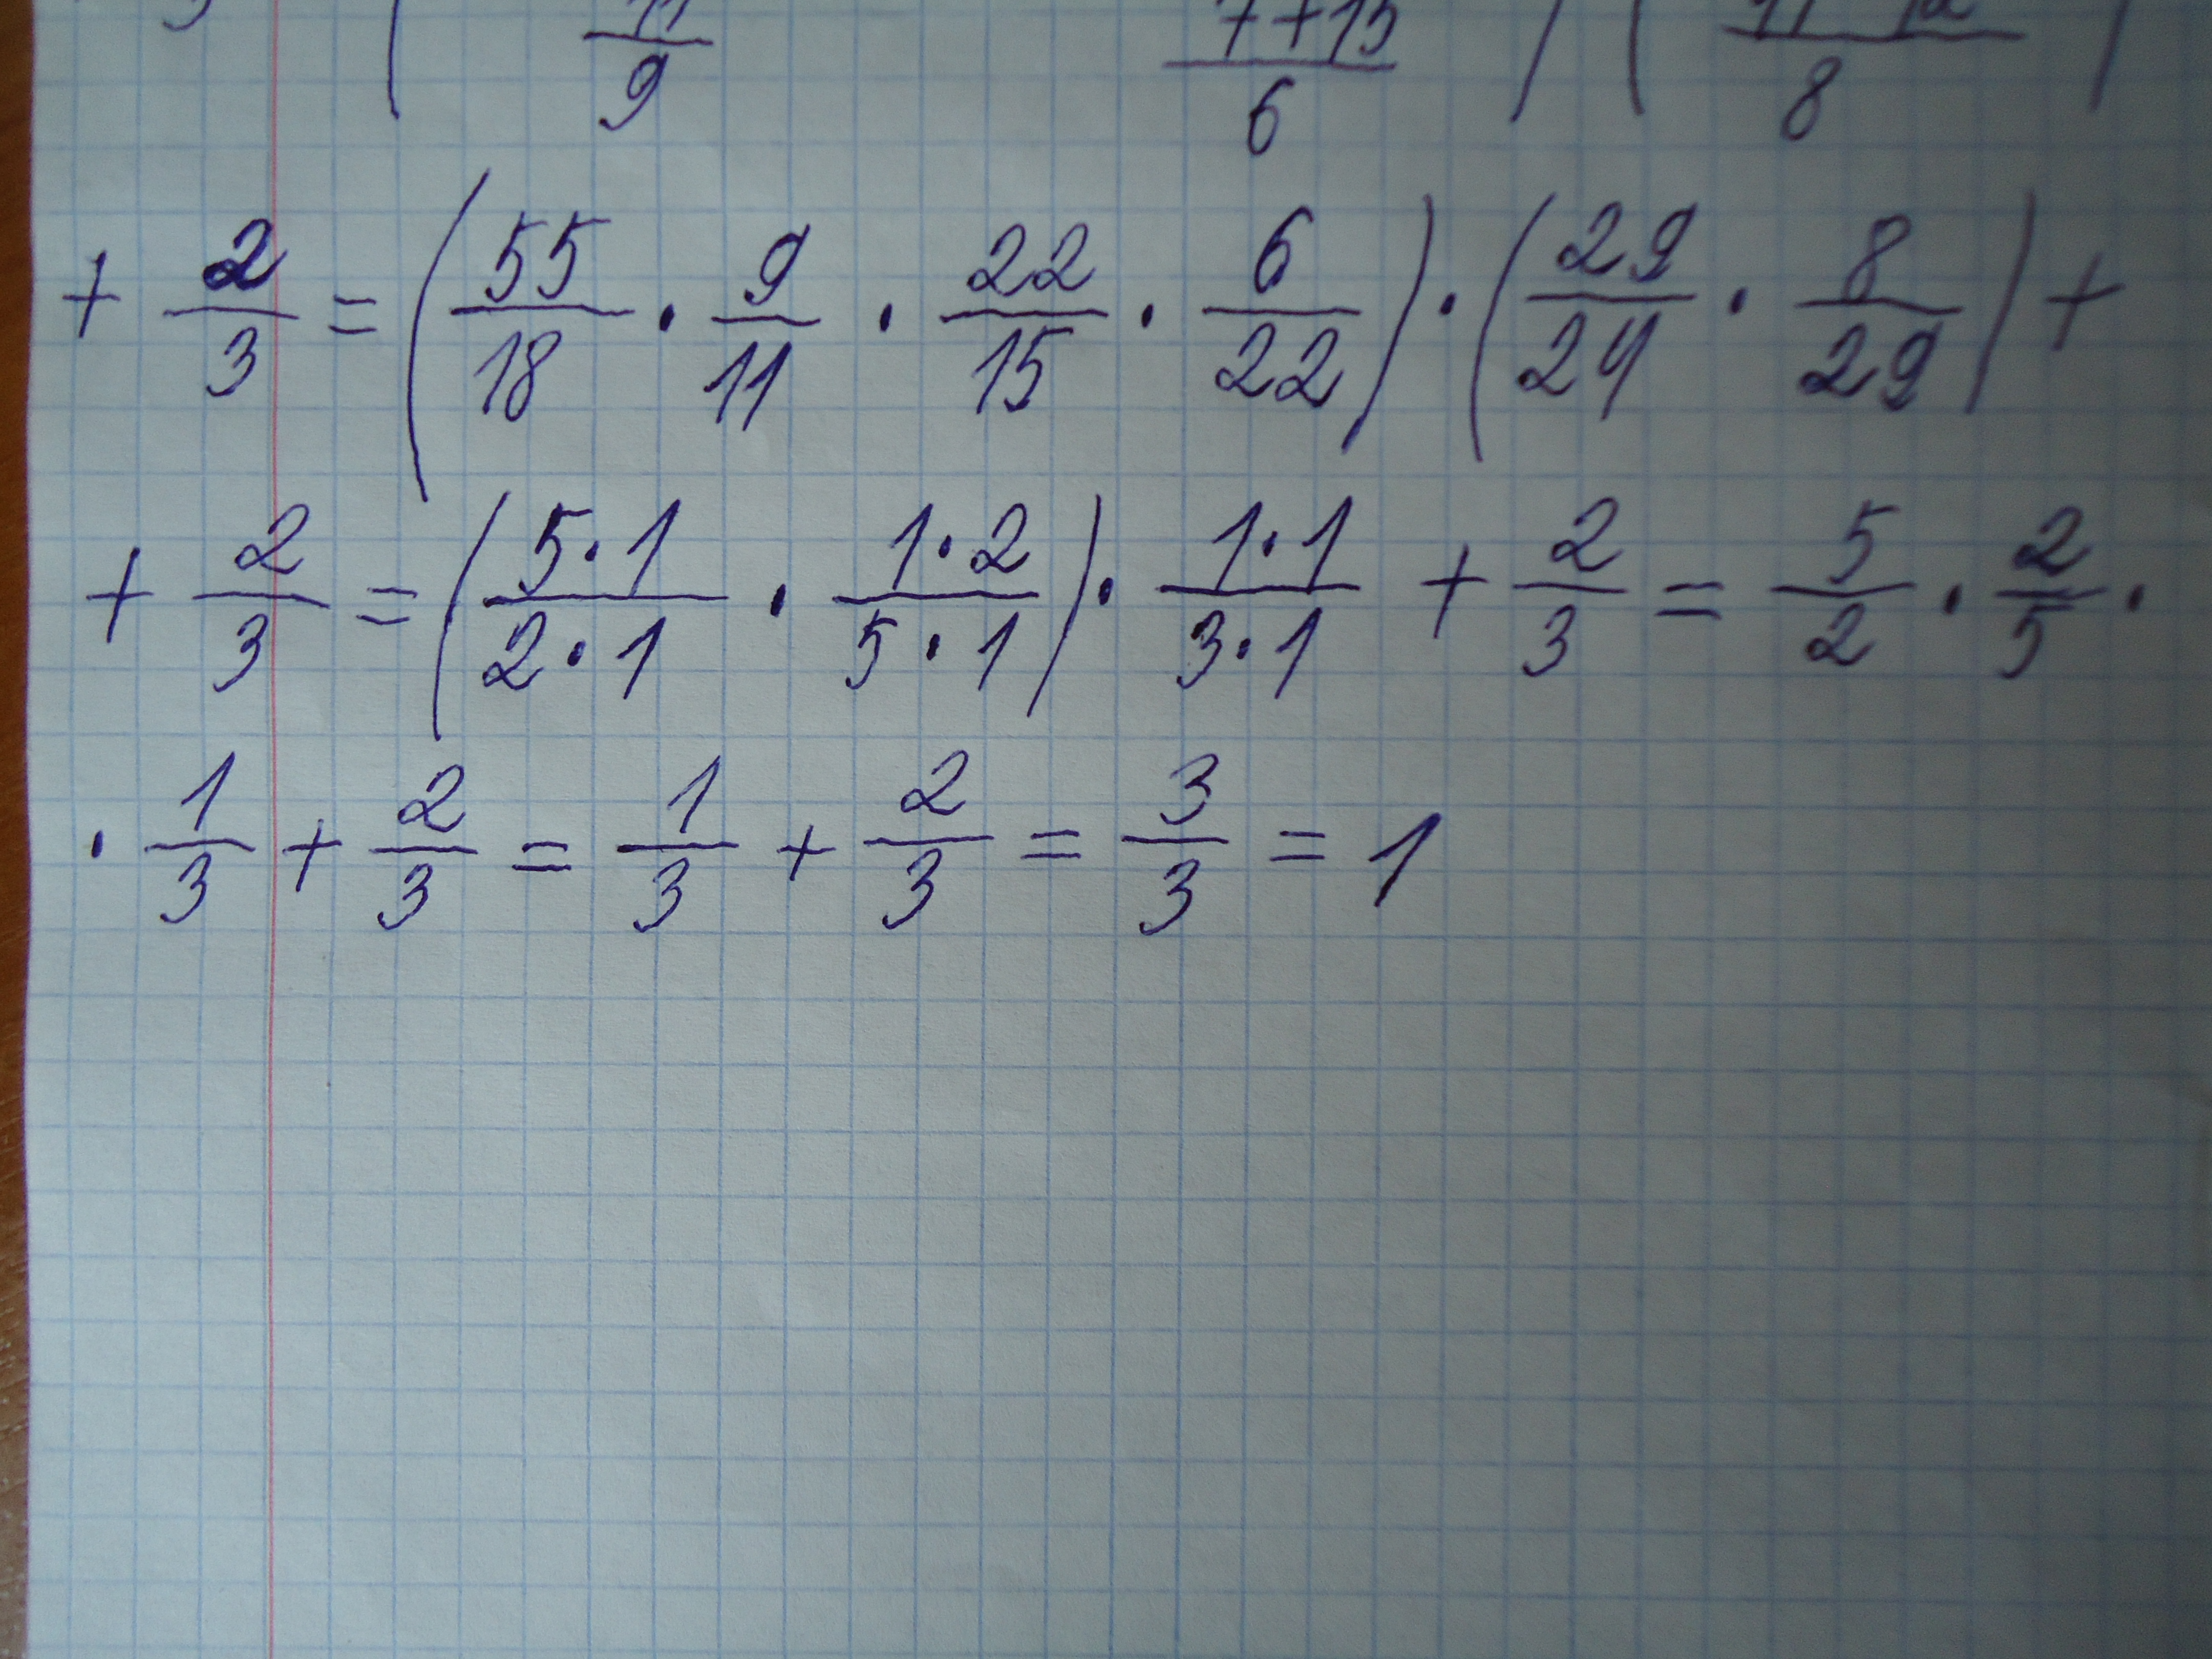 11/9 (7+15)/6 8
+ 2/3 = (55/18 · 9/11 · 22/15 · 6/22) · (29/24 · 8/29) +
+ 2/3 = ((5·1)/(2·1) · (1·2)/(5·1)) · (1·1)/(3·1) + 2/3 = 5/2 · 2/5 ·
· 1/3 + 2/3 = 1/3 + 2/3 = 3/3 = 1